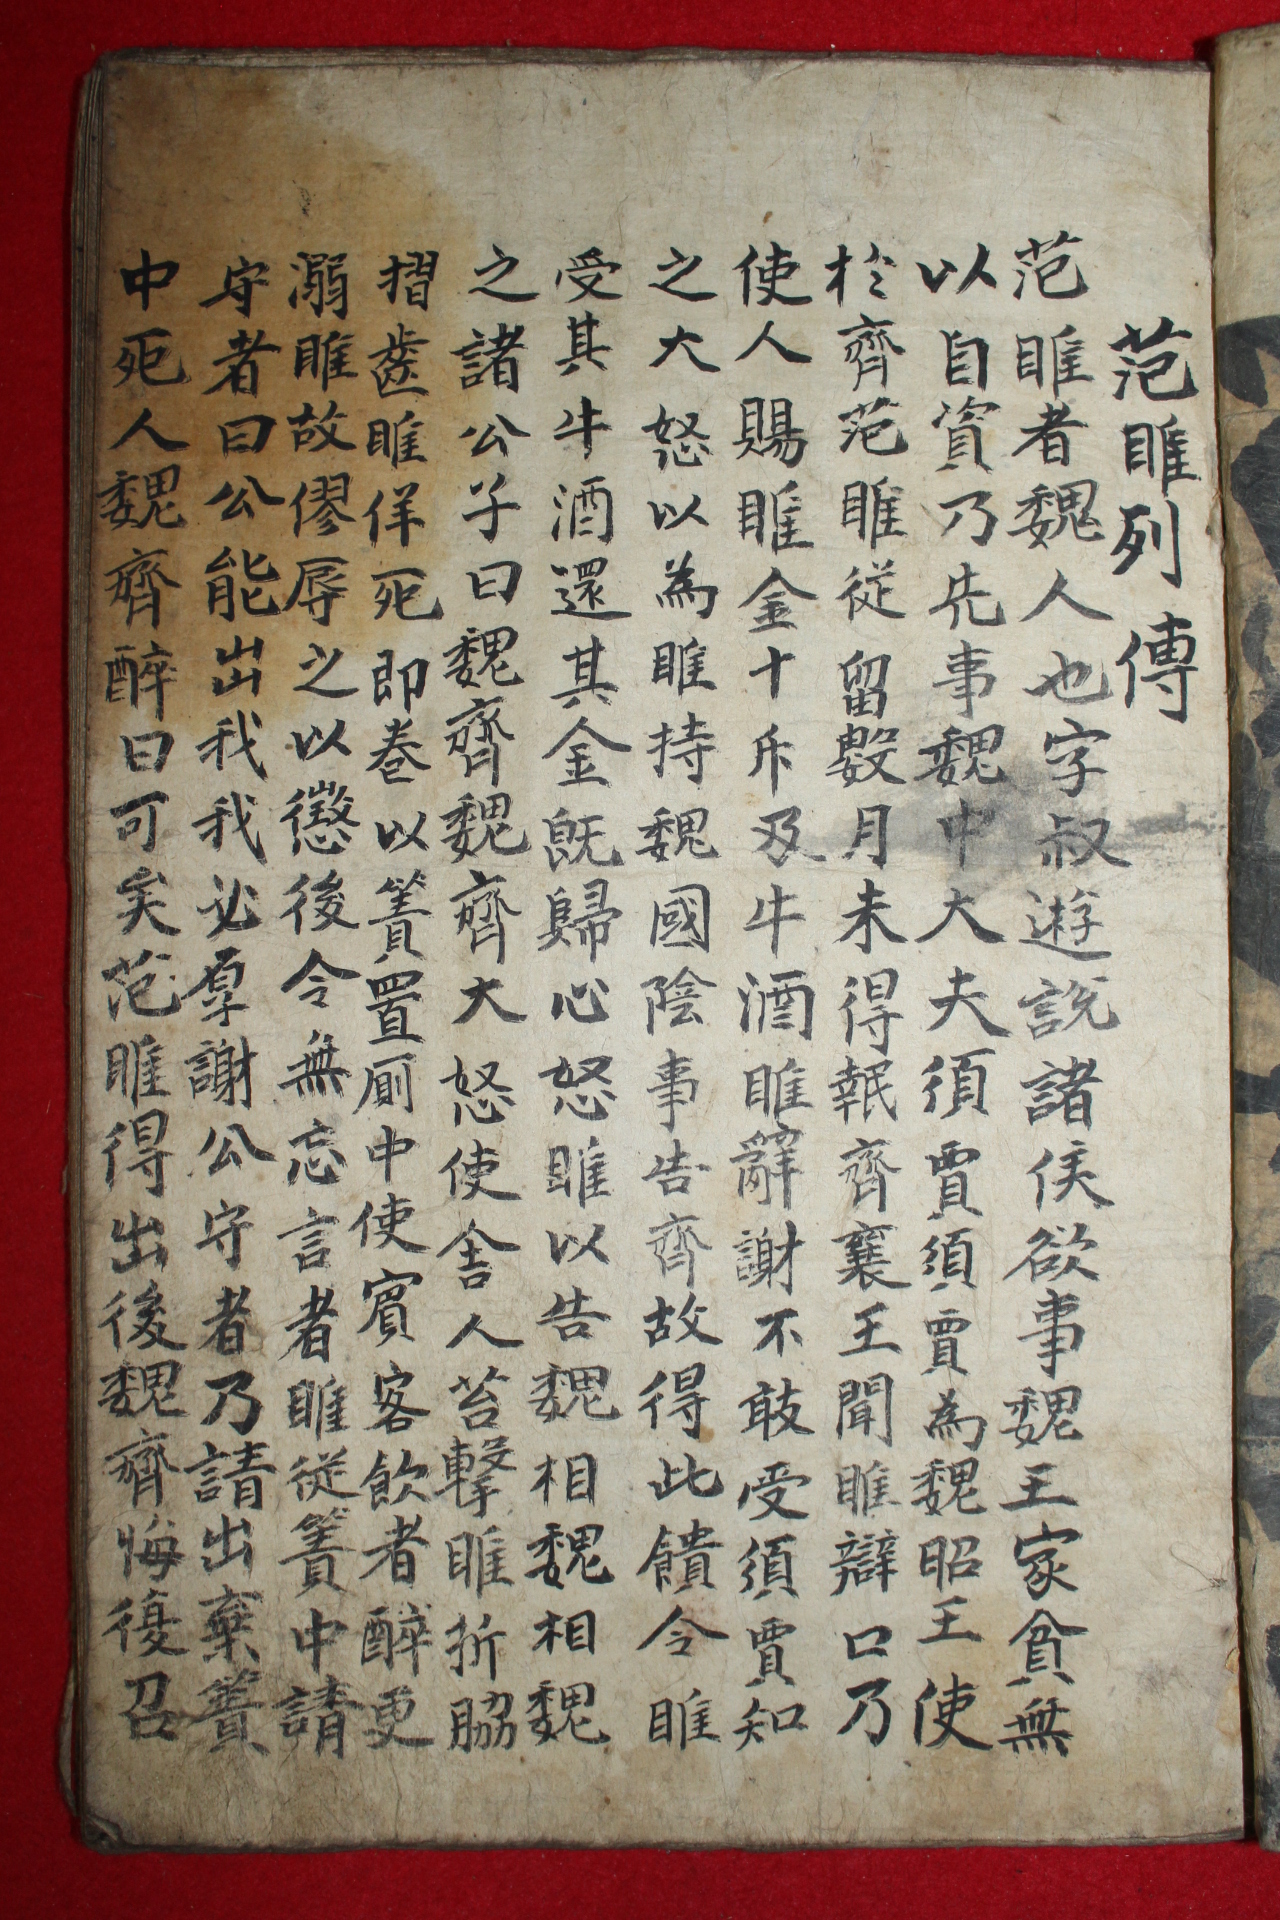 范睢列傳
范睢者魏人也字叔遊說諸侯欲事魏王家貧無
以自資乃先事魏中大夫須賈須賈為魏昭王使
於齊范睢從留數月未得報齊襄王聞睢辯口乃
使人賜睢金十斤及牛酒睢辭謝不敢受須賈知
之大怒以為睢持魏國陰事告齊故得此饋令睢
受其牛酒還其金旣歸心怒睢以告魏相魏相魏
之諸公子曰魏齊魏齊大怒使舍人苔擊睢折脇
摺齒睢佯死即卷以簀置厠中使賓客飮者醉更
溺睢故僇辱之以懲後令無忘言者睢從簀中請
守者曰公能出我我必厚謝公守者乃請出棄簀
中死人魏齊醉曰可矣范睢得出後魏齊悔復召